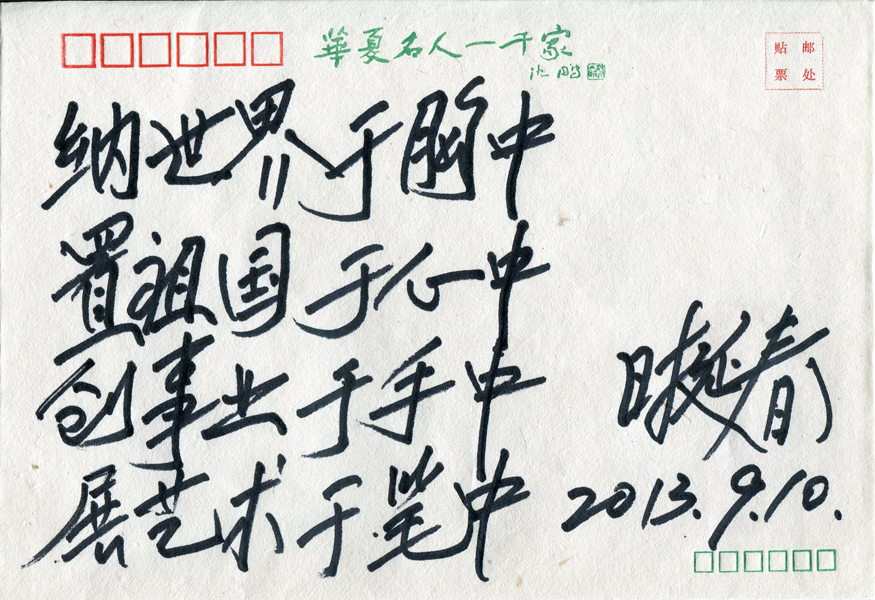 華夏名人一千家
沈鹏
贴邮
票处
纳世界于胸中
置祖国于心中
创事业于手中
展艺术于笔中
时延春
2013.9.10.